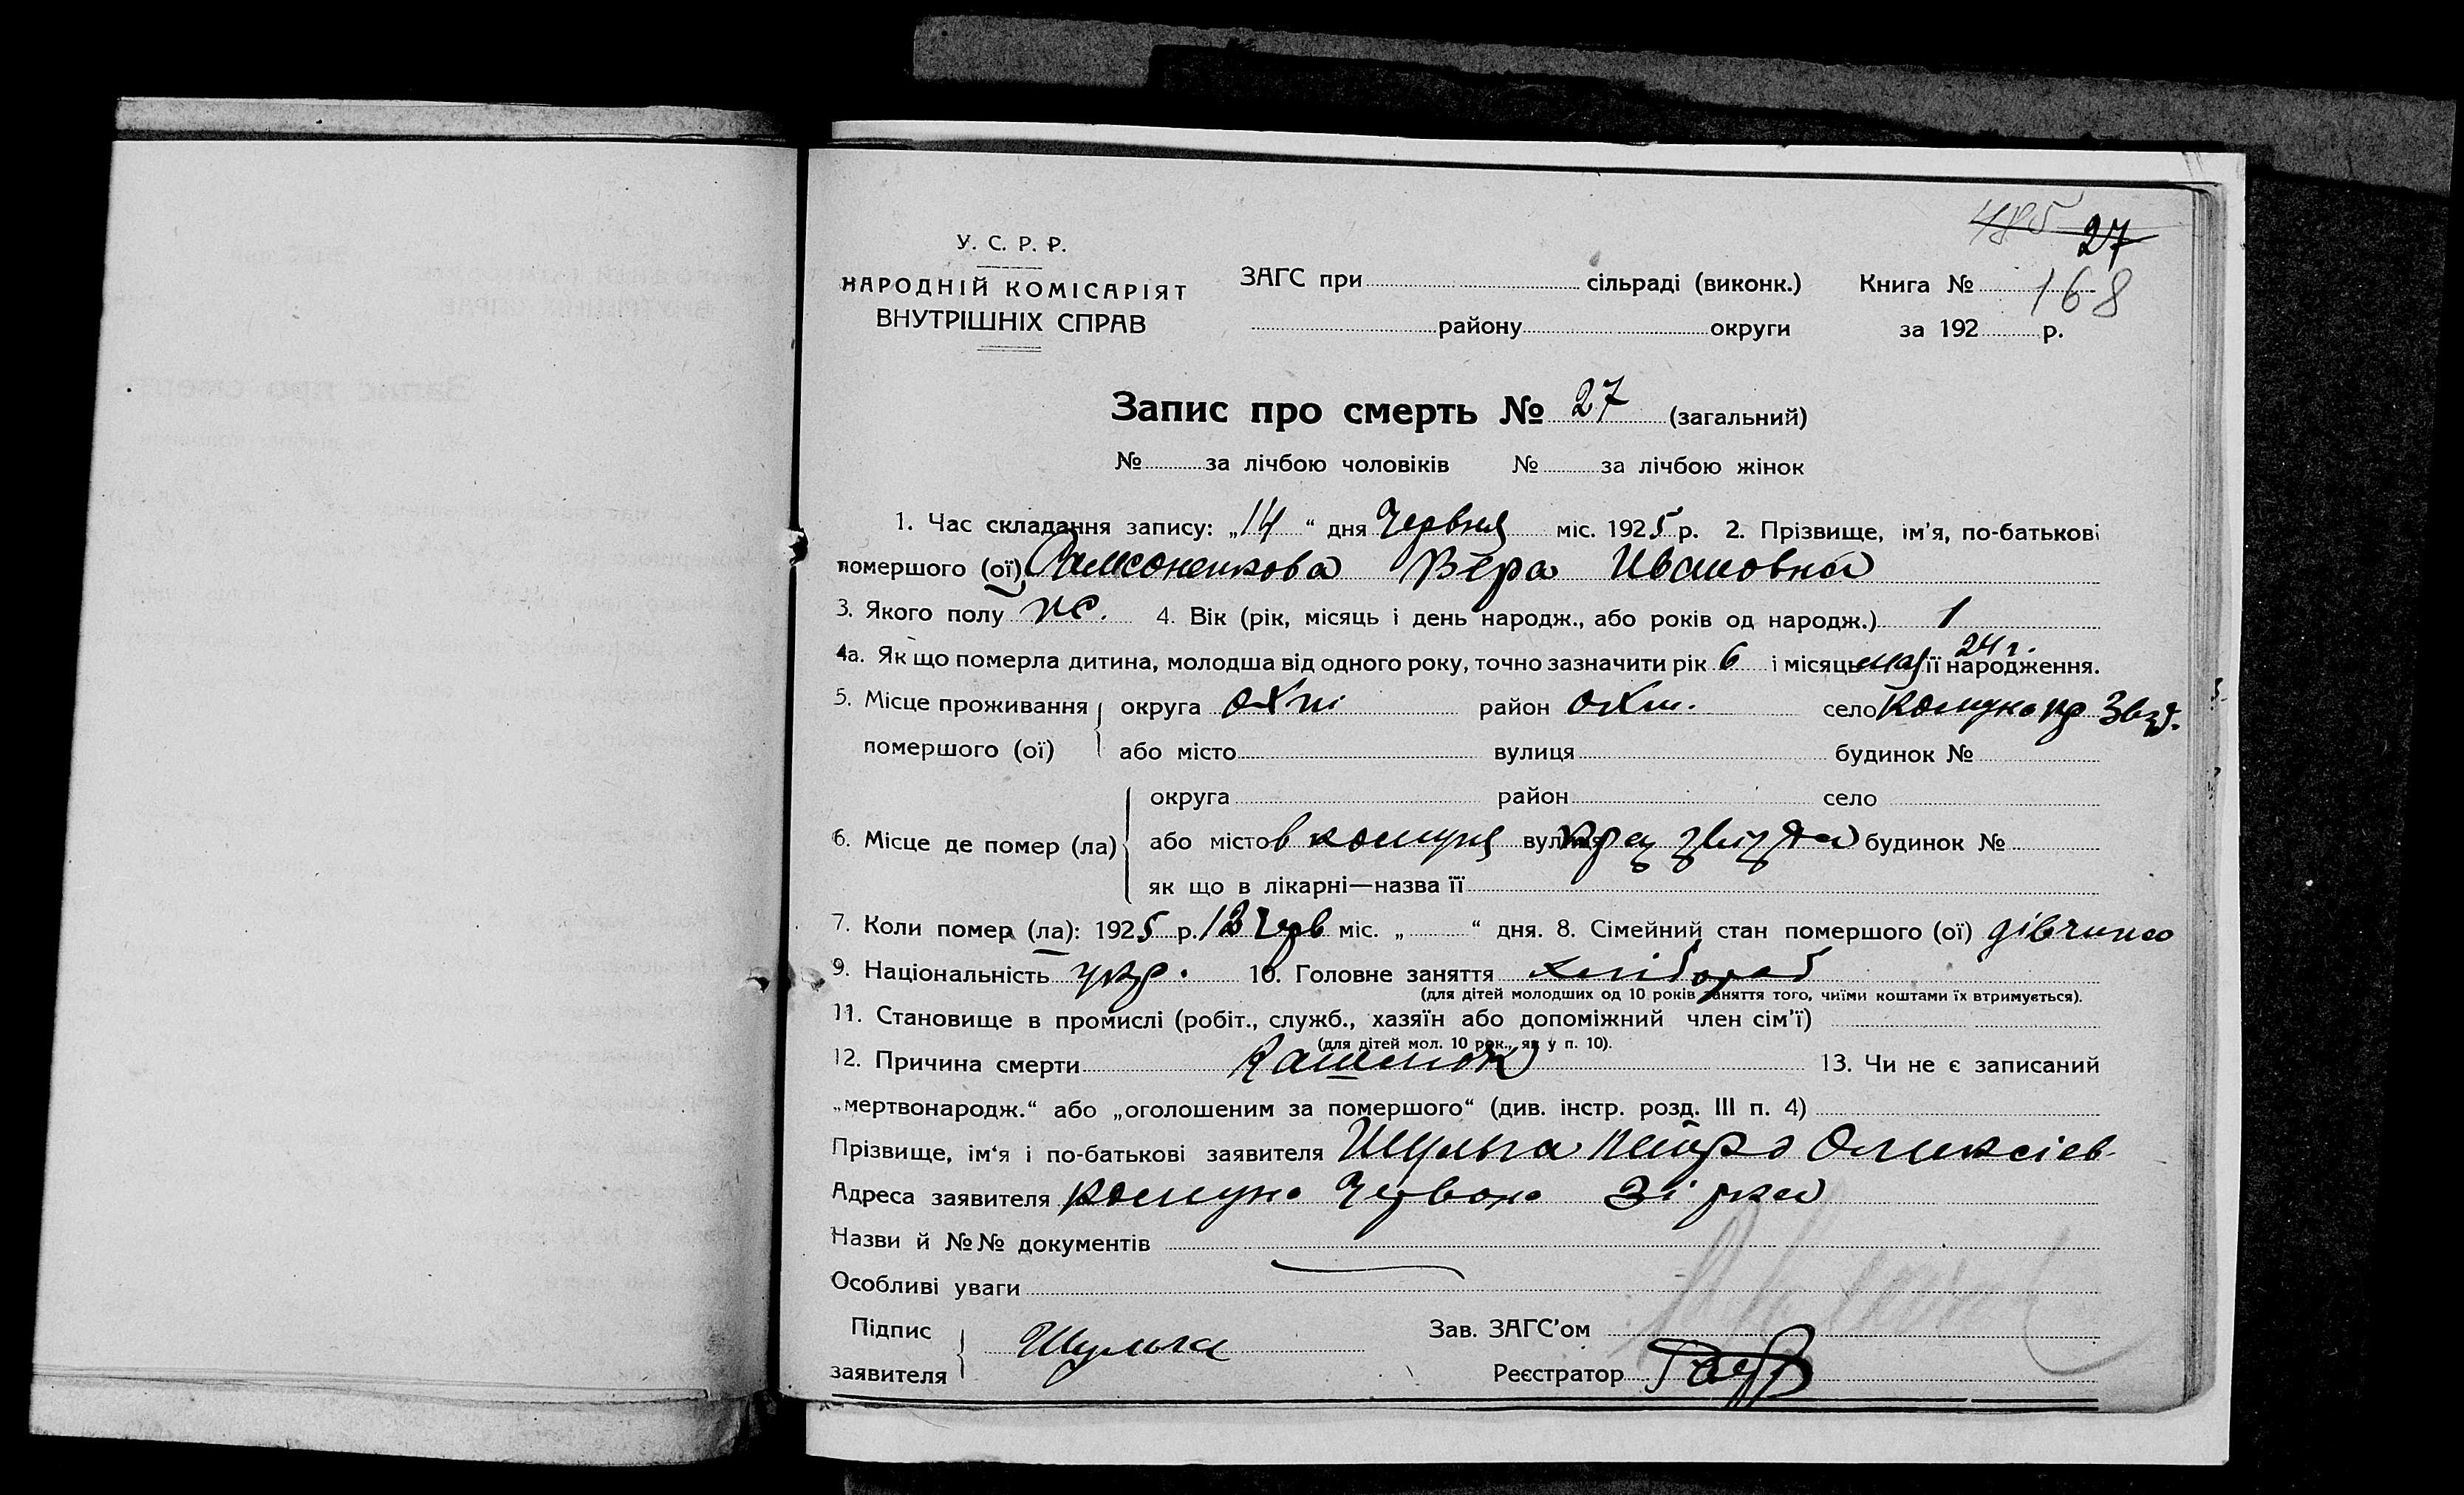 485 27
У. С. Р. Р.
НАРОДНІЙ КОМІСАРІЯТ
ВНУТРІШНІХ СПРАВ
ЗАГС при сільраді (виконк.) Книга № 168
району округи за 192 р.
Запис про смерть № 27 (загальний)
№ за лічбою чоловіків № за лічбою жінок
1. Час складання запису: „14“ дня Червня міс. 1925 р. 2. Прізвище, ім'я, по-батькові
помершого (ої) Самсоненкова Вера Ивановна
3. Якого полу ж. 4. Вік (рік, місяць і день народж., або років од народж.) 1
4а. Як що померла дитина, молодша від одного року, точно зазначити рік 6 і місяць мая її народження. 24 г.
5. Місце проживання помершого (ої) округа охт район охт. село комуна кр Звзд.
або місто вулиця будинок №
6. Місце де помер (ла) округа район село
або місто в комуня вулиця крас звізда будинок №
як що в лікарні—назва її
7. Коли помер (ла): 1925 р. 13 Черв міс. „ “ дня. 8. Сімейний стан помершого (ої) дівчина
9. Національність укр. 10. Головне заняття хлібороб
(для дітей молодших од 10 років заняття того, чиїми коштами їх втримується).
11. Становище в промислі (робіт., служб., хазяїн або допоміжний член сім'ї)
(для дітей мол. 10 рок., як у п. 10).
12. Причина смерти Кашлюк 13. Чи не є записаний
„мертвонародж.“ або „оголошеним за помершого“ (див. інстр. розд. III п. 4)
Прізвище, ім'я і по-батькові заявителя Шульга Петро Олексієв
Адреса заявителя комуна Червона Зірка
Назви й №№ документів
Особливі уваги
Підпис заявителя Шульга Зав. ЗАГС'ом
Реєстратор